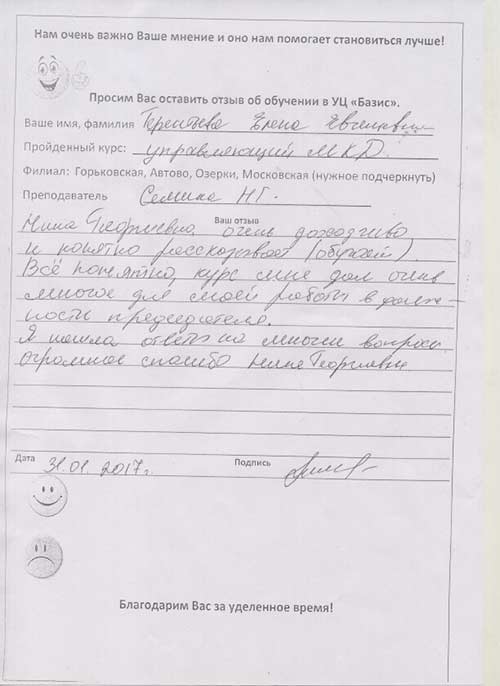 Нам очень важно Ваше мнение и оно нам помогает становиться лучше!
Просим Вас оставить отзыв об обучении в УЦ «Базис».
Ваше имя, фамилия Терентьева Елена Евгеньевна
Пройденный курс: управляющий МКД.
Филиал: Горьковская, Автово, Озерки, Московская (нужное подчеркнуть)
Преподаватель Семина Н.Г.
Ваш отзыв
Нина Георгиевна, очень доходчиво
и понятно рассказывает (обучает).
Всё понятно, курс мне дал очень
многое для моей работы в долж-
ности председателя.
Я нашла ответы на многие вопросы
Огромное спасибо Нине Георгиевне
Дата 31.01.2017г. Подпись
Благодарим Вас за уделенное время!